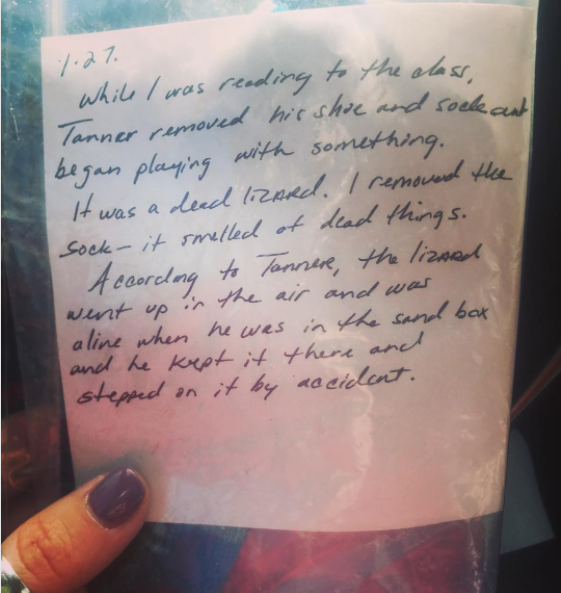 1.27.
While I was reading to the class,
Tanner removed his shoe and sock and
began playing with something.
It was a dead lizard. I removed the
sock – it smelled of dead things.
According to Tanner, the lizard
went up in the air and was
alive when he was in the sand box
and he kept it there and
stepped on it by accident.